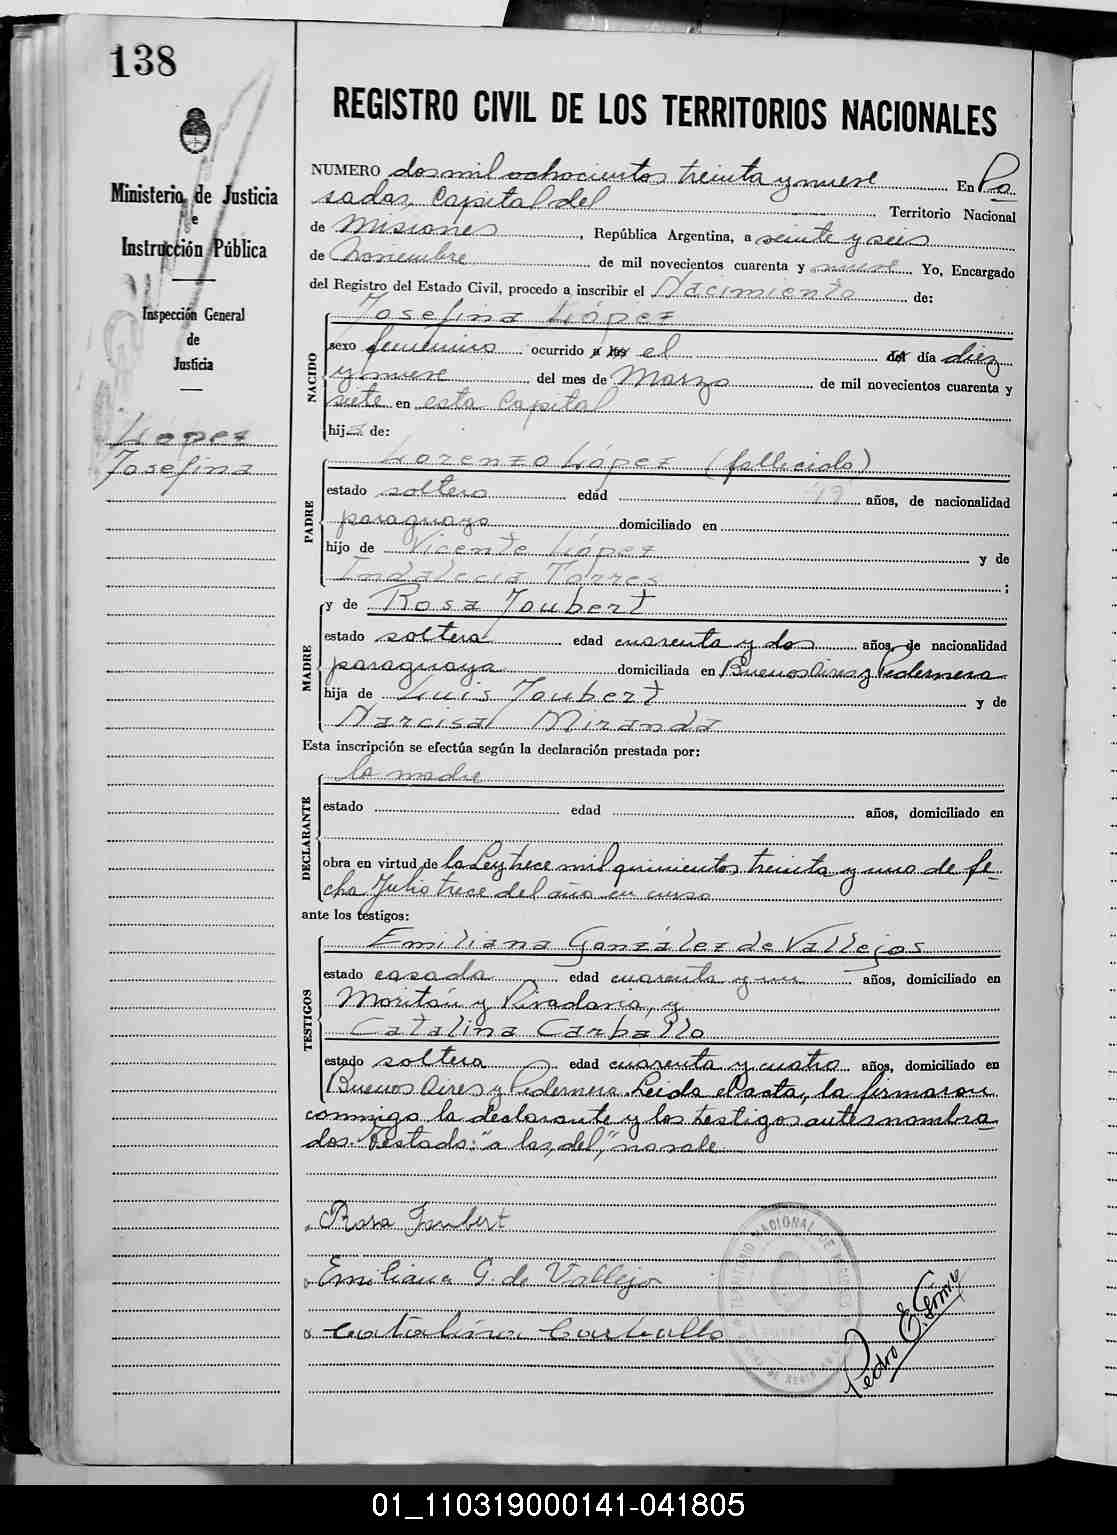 138
Ministerio de Justicia
e
Instrucción Pública
Inspección General
de
Justicia
López
Josefina
REGISTRO CIVIL DE LOS TERRITORIOS NACIONALES
NUMERO dos mil ochocientos treinta y nueve En Po
sadas, Capital del Territorio Nacional
de Misiones, República Argentina, a veinte y seis
de Noviembre de mil novecientos cuarenta y nueve Yo, Encargado
del Registro del Estado Civil, procedo a inscribir el Nacimiento de:
NACIDO
Josefina López
sexo femenino ocurrido a las el del día diez
y nueve del mes de Marzo de mil novecientos cuarenta y
siete en esta Capital
hija de:
PADRE
Lorenzo López (fallecido)
estado soltero edad años, de nacionalidad
paraguayo domiciliado en
hijo de Vicente López y de
Indalecia Torres ;
MADRE
y de Rosa Joubert
estado soltera edad cuarenta y dos años, de nacionalidad
paraguaya domiciliada en Buenos Aires y Pedernera
hija de Luis Joubert y de
Narcisa Miranda
Esta inscripción se efectúa según la declaración prestada por:
DECLARANTE
la madre
estado edad años, domiciliado en
obra en virtud de la Ley trece mil quinientos treinta y uno de fe-
cha Julio trece del año en curso
ante los testigos:
TESTIGOS
Emiliana González de Vallejos
estado casada edad cuarenta y un años, domiciliado en
Moritán y Rivadavia, y
Catalina Carballo
estado soltera edad cuarenta y cuatro años, domiciliado en
Buenos Aires y Pedernera. Leida el acta, la firmaron
conmigo la declarante y los testigos antes nombra
dos. Testado: "a las, del," no vale
Rosa Joubert
Emiliana G. de Vallejo
Catalina Carballo
Pedro E. Giménez
01_110319000141-041805